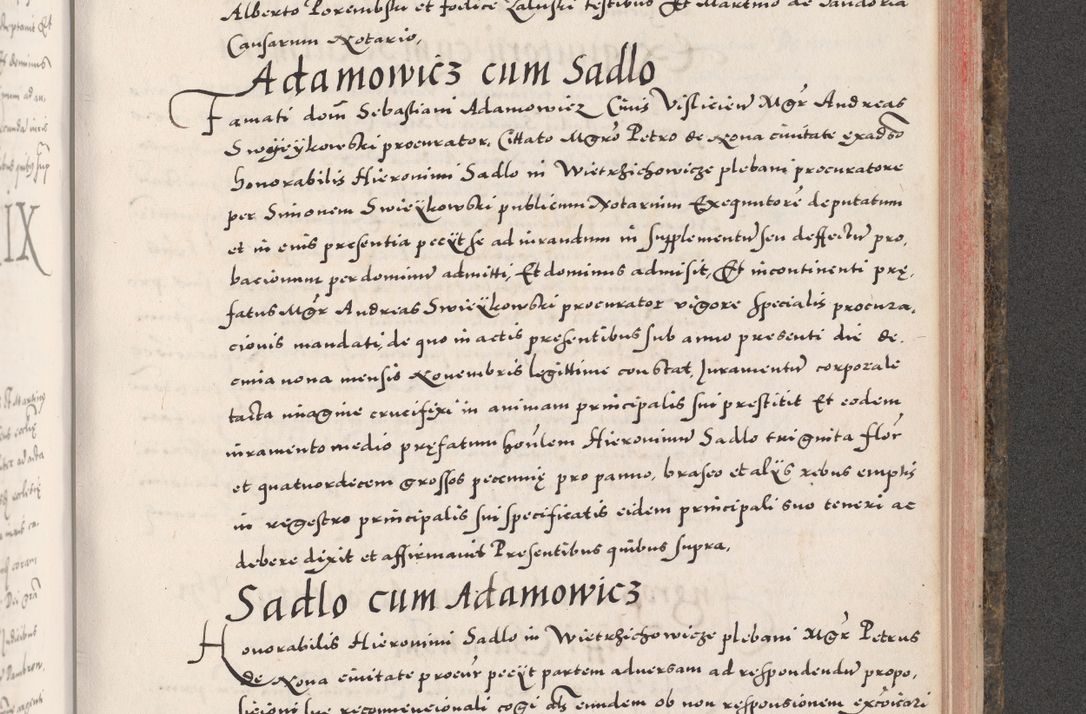 Alberto Porembski et Jodice Zaluski testibus Et Martino de Sandoria
Causarum Notario.
Adamowicz cum Sadlo
Famati dom̄ Sebastiani Adamowicz Civis Visliciēn Mgr̄ Andreas
Swyeykowski procurator, Cittato Mgrō Petro de Nova civitate exadso
honorabilis Hieronimi Sadlo in Wietrzichowicze plebani procuratore
per Simonem Swieykowski publicum Notarium Exequutorē deputatum
et in eius presentia pecyt se ad iurandum in supplementū seu deffectū pro,
bacionum per dominū admitti, Et dominus admisit, Et incontinenti prę,
fatus Mgr̄ Andreas Swieykowski procurator vigore specialis procura,
cionis mandati, de quo in actis presentibus sub anno presenti die de,
cmia nona mensis Novembris legittime constat, Juramentū corporale
tacta imagine crucifixi in animam principalis sui prestitit Et eodem
iuramento medio pręfatum hoūlem Hieronimū Sadlo triginta flor̄
et quatuordecem grossos pecunię pro panno, braseo et alys rebus emptis
in regestro principalis sui specificatis eidem principali suo teneri ac
debere dixit et affirmavit Presentibus quibus supra.
Sadlo cum Adamowicz
Honorabilis Hieronimi Sadlo in Wietrzichowicze plebani Mgr̄ Petrus
de Nova civitate procur̄ pecyt partem adversam ad respondendū propo,
sicioni sue reconvencionali cogi als̄ eundem ob non responsionem excōicari